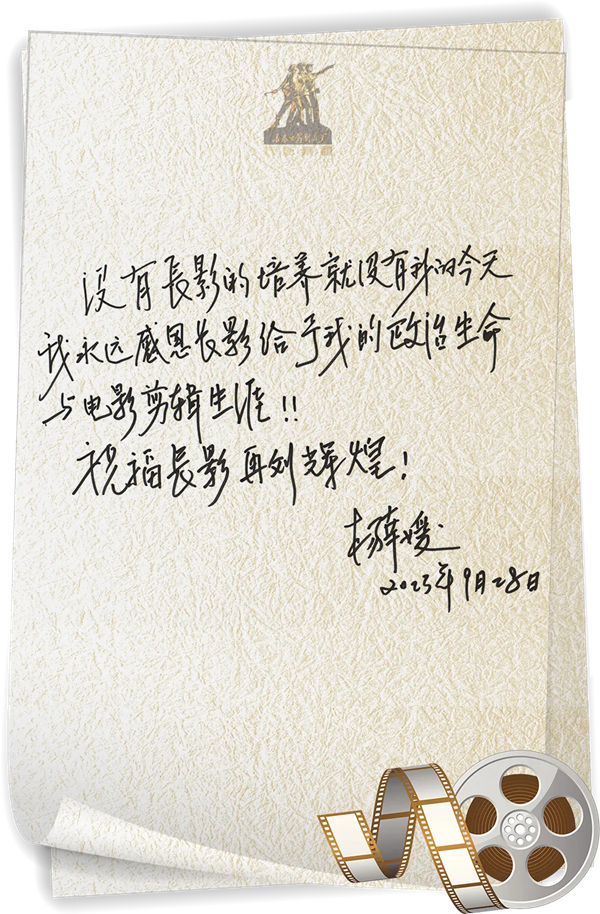 没有長影的培养就没有我的今天
我永远感恩长影给予我的政治生命
与电影剪辑生涯!!
祝福長影再创辉煌!
杨 媛
2023年9月28日